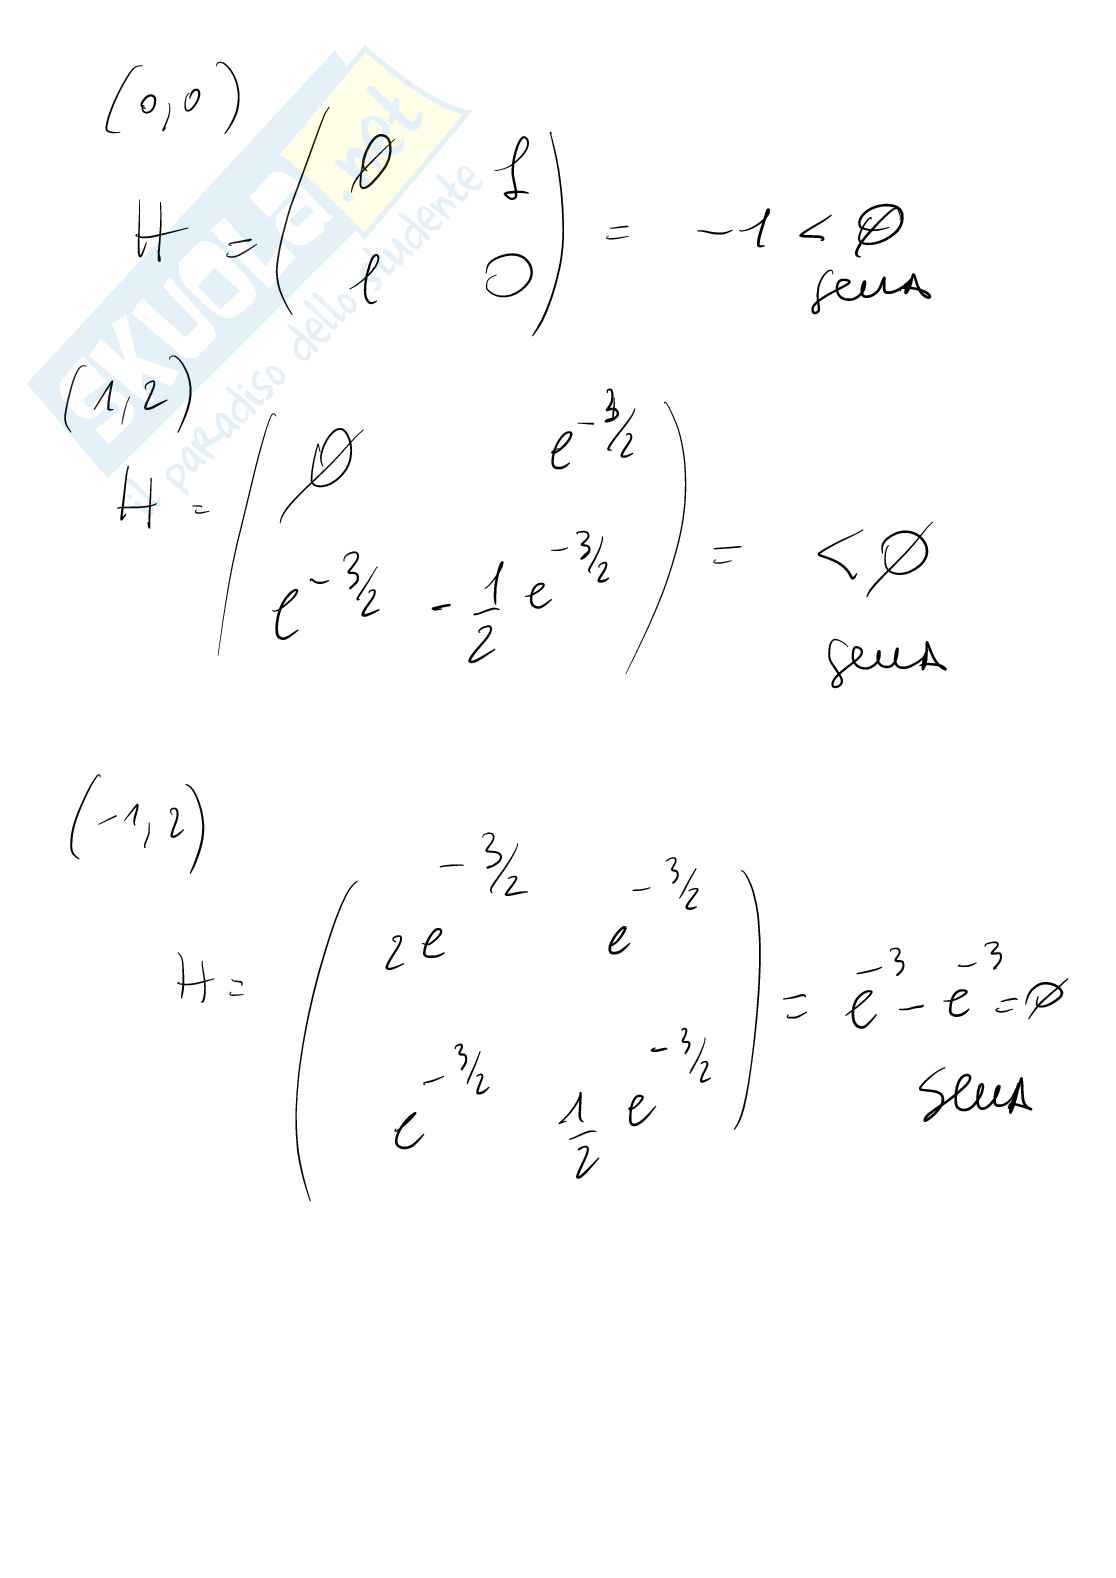 (0,0)
H = ( 0 1
1 0 ) = -1 < 0
sella
(1,2)
H = ( 0 e^{-3/2}
e^{-3/2} -1/2 e^{-3/2} ) = < 0
sella
(-1,2)
H = ( 2e^{-3/2} e^{-3/2}
e^{-3/2} 1/2 e^{-3/2} ) = e^{-3} - e^{-3} = 0
sella
SKUOLA.net
il paradiso dello studente